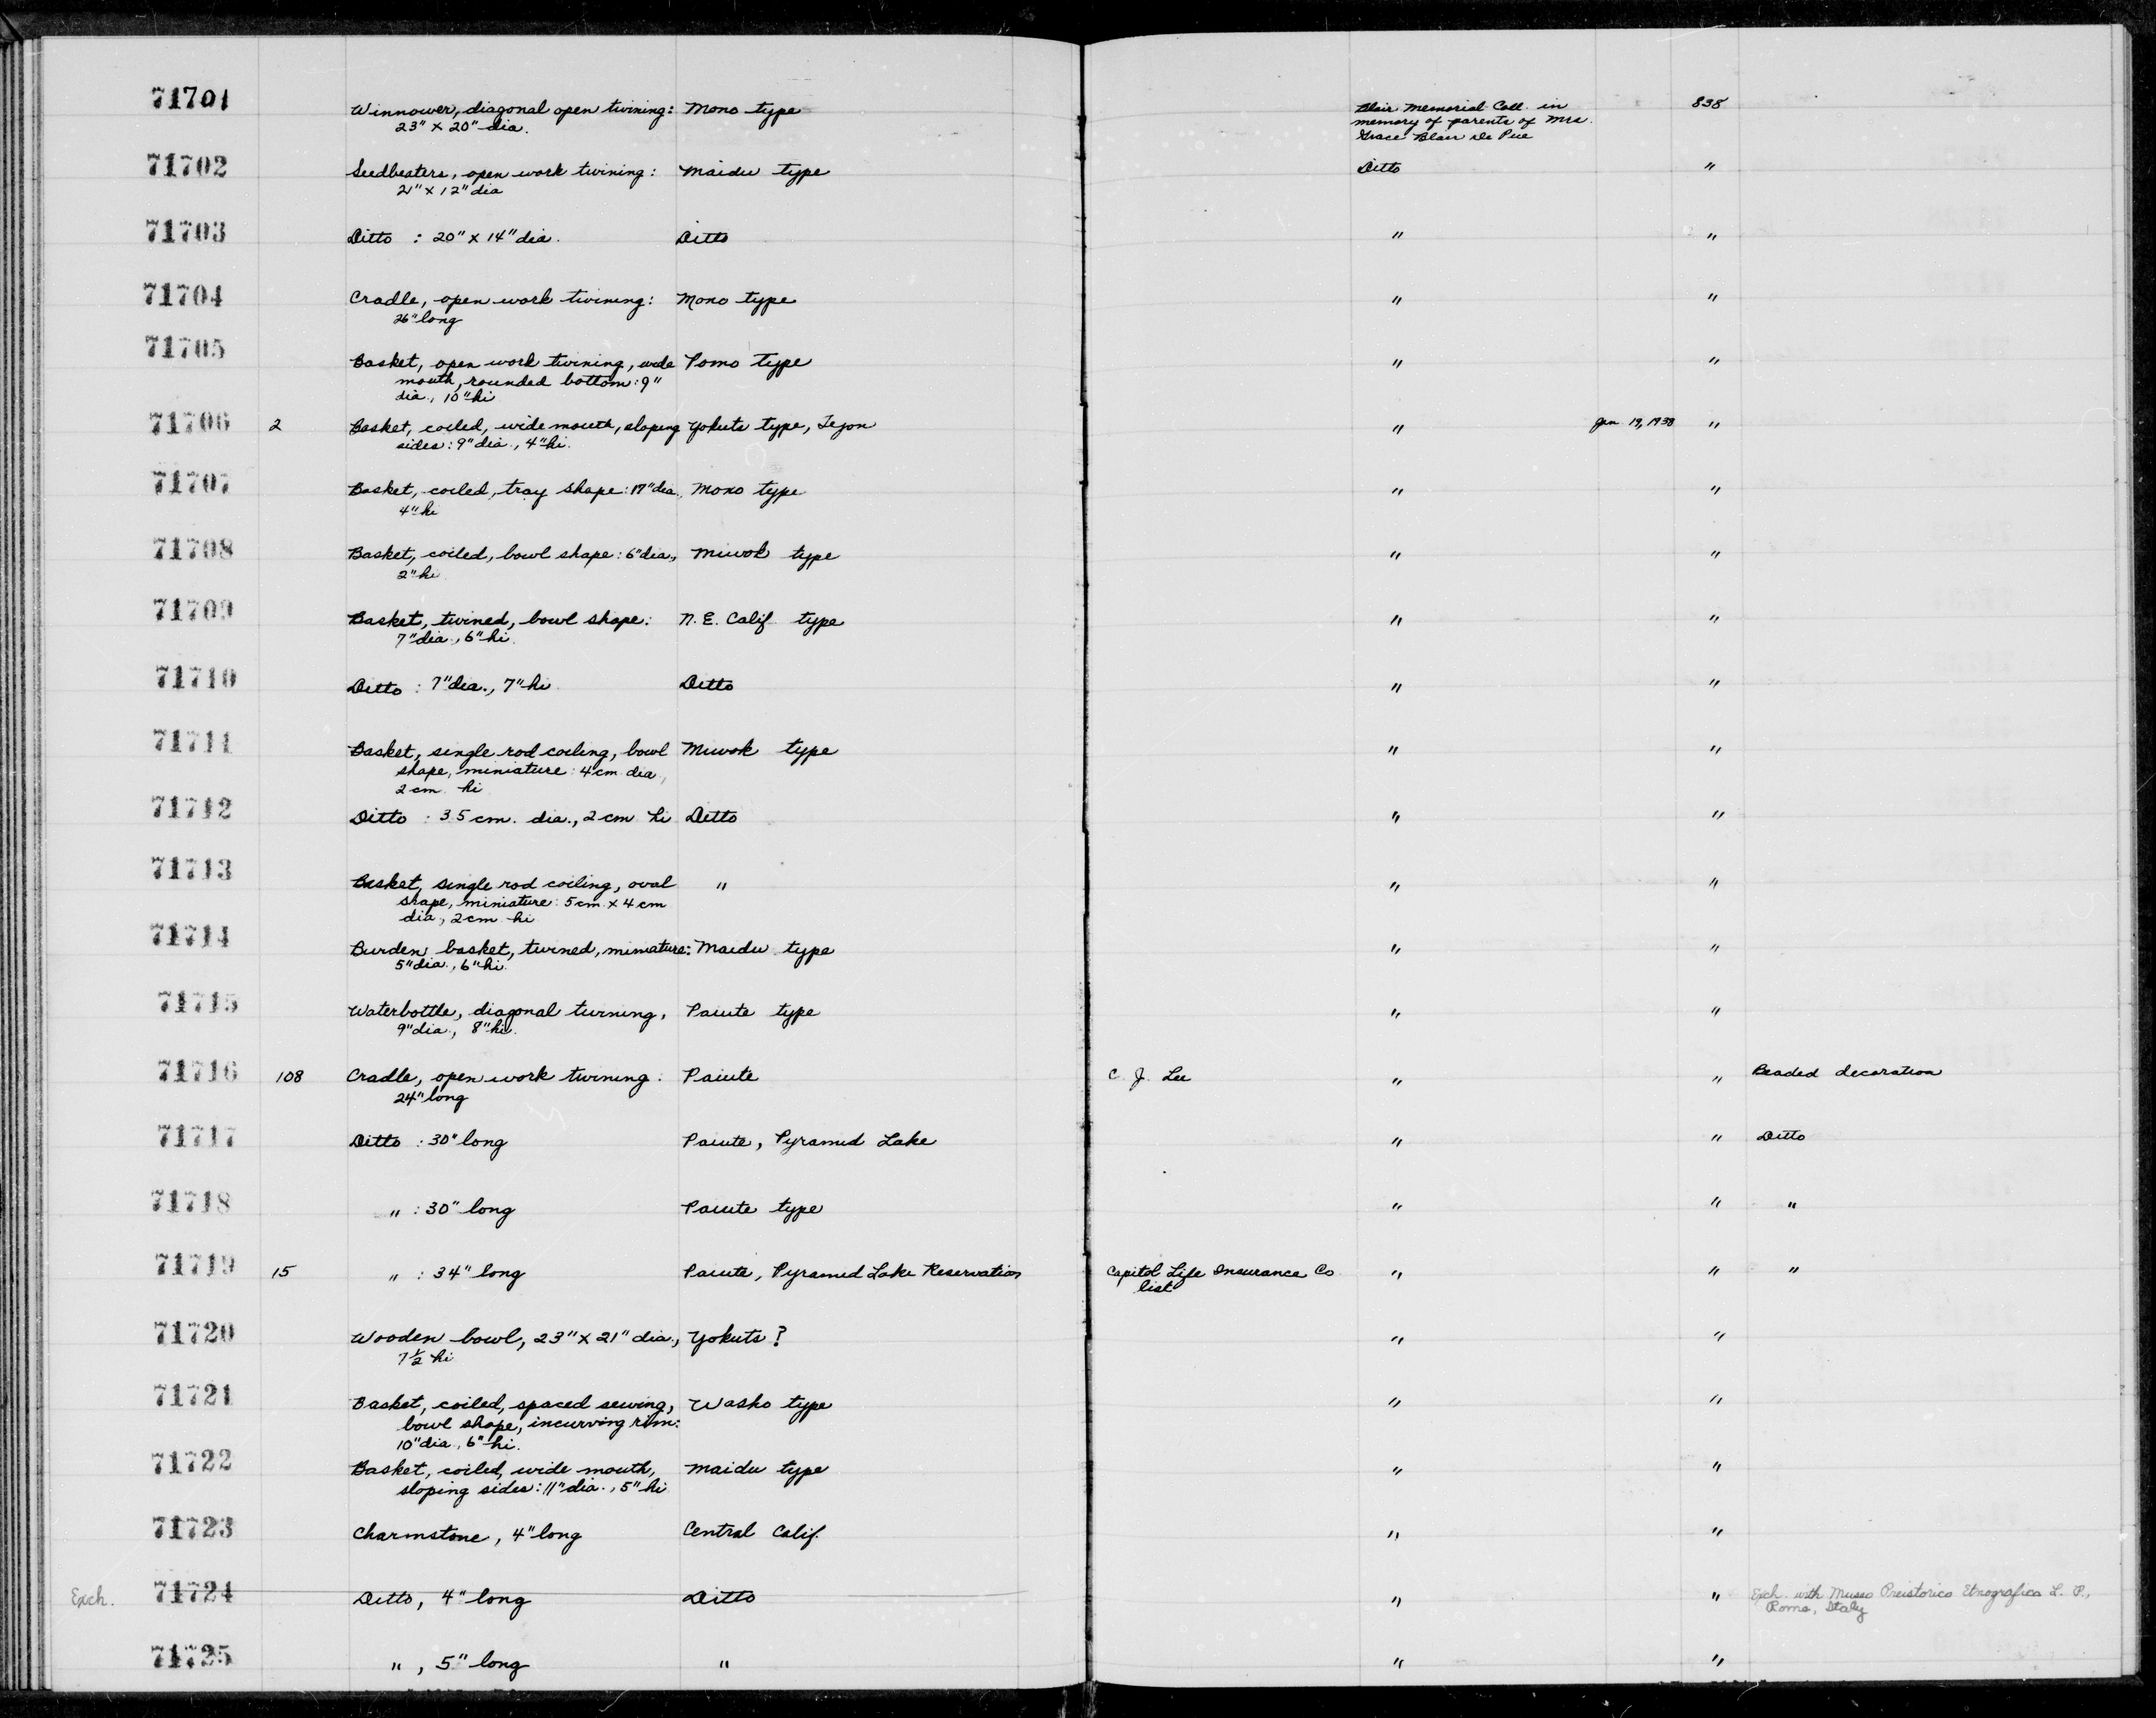 71701 Winnower, diagonal open twining: Mono type Blair Memorial Coll. in 838
23" x 20" dia. memory of parents of Mrs.
Grace Blair De Pue
71702 Seedbeaters, open work twining: Maidu type Ditto "
21" x 12" dia
71703 Ditto : 20" x 14" dia. Ditto " "
71704 Cradle, open work twining: Mono type " "
26" long
71705 Basket, open work twining, wide Pomo type " "
mouth, rounded bottom: 9"
dia., 10" hi
71706 2 Basket, coiled, wide mouth, sloping Yokuts type, Tejon " Jan. 19, 1938 "
sides: 9" dia., 4" hi.
71707 Basket, coiled, tray shape: 17" dia., Mono type " "
4" hi
71708 Basket, coiled, bowl shape: 6" dia., Miwok type " "
2" hi
71709 Basket, twined, bowl shape: N. E. Calif. type " "
7" dia., 6" hi.
71710 Ditto : 7" dia., 7" hi. Ditto " "
71711 Basket, single rod coiling, bowl Miwok type " "
shape, miniature: 4 cm. dia.,
2 cm. hi
71712 Ditto : 3.5 cm. dia., 2 cm hi Ditto " "
71713 Basket, single rod coiling, oval " " "
shape, miniature: 5 cm. x 4 cm
dia., 2 cm. hi
71714 Burden basket, twined, miniature: Maidu type " "
5" dia., 6" hi.
71715 Waterbottle, diagonal twining, Paiute type " "
9" dia., 8" hi.
71716 108 Cradle, open work twining: Paiute C. J. Lee " " Beaded decoration
24" long
71717 Ditto : 30" long Paiute, Pyramid Lake " " Ditto
71718 " : 30" long Paiute type " " "
71719 15 " : 34" long Paiute, Pyramid Lake Reservation Capitol Life Insurance Co. " " "
list
71720 Wooden bowl, 23" x 21" dia., Yokuts? " "
7½ hi
71721 Basket, coiled, spaced sewing, Washo type " "
bowl shape, incurving rim:
10" dia., 6" hi.
71722 Basket, coiled, wide mouth, Maidu type " "
sloping sides: 11" dia., 5" hi
71723 Charmstone, 4" long Central Calif. " "
Exch. 71724 Ditto, 4" long Ditto " " Exch. with Museo Preistorico Etnografico L. P.,
Rome, Italy
71725 " , 5" long " " "